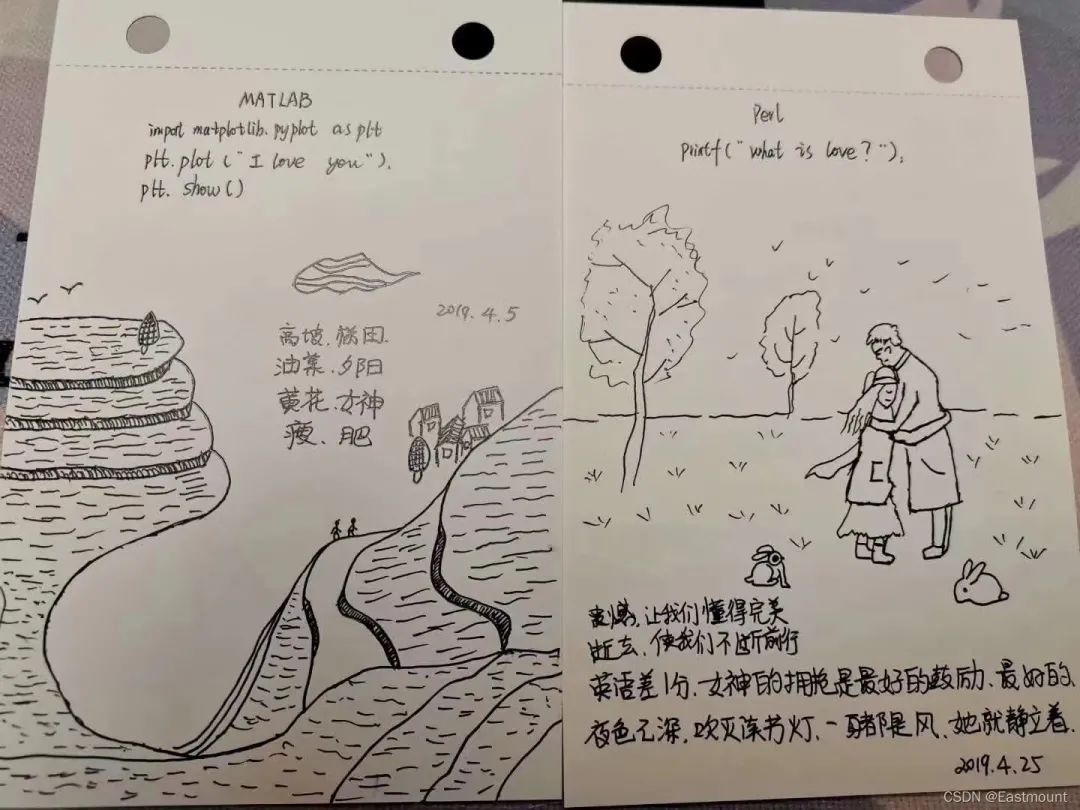 MATLAB
import matplotlib.pyplot as plt
plt.plot("I love you").
plt. show()
2019.4.5
高坡、梯田.
油菜、夕阳
黄花、女神
瘦、肥
Perl
printf("what is love?");
遗憾,让我们懂得完美
逝去,使我们不断前行
英语差1分,女神的拥抱是最好的鼓励、最好的.
夜色已深,吹灭读书灯,一 都是风、她就静立着.
2019.4.25
CSDN @Eastmount